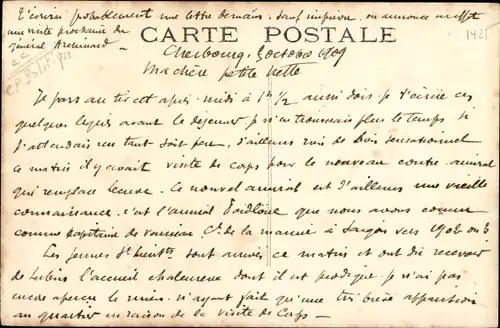 T'écrirai probablement une lettre demain. Sauf imprévu. on annonce en effet
une visite prochaine du
général Archinard
CARTE POSTALE
1421
Cherbourg, 3 octobre 1909
Ma chère petite
Je pars au tir cet après-midi à 1h 1/2 aussi dois je t'écrire ces
quelques lignes avant le déjeuner je n'en trouverais plus le temps si
j'attendais un tant soit peu, d'ailleurs rien de bien sensationnel
ce matin il y avait visite de corps pour le nouveau contre-amiral
qui remplace Le nouvel amiral est d'ailleurs une vieille
connaissance. c'est l'amiral que nous avons connu
comme Capitaine de vaisseau Ct de la marine à Saïgon vers 1902 ou 3
Les jeunes St sont arrivés ce matin et ont dû recevoir
de l'accueil chaleureux dont il est prodigue je n'ai pas
encore aperçu le mien n'ayant fait qu'une très brève apparition
au quartier en raison de la visite de Corps -